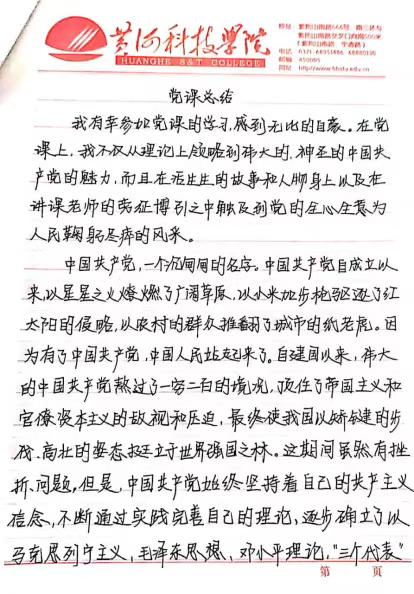 黄河科技学院
HUANGHE S&T COLLEGE
邮编 450005
党课总结
我有幸参加党课的学习,感到无比的自豪。在党
课上,我不仅从理论上领略到伟大的,神圣的中国共
产党的魅力,而且在活生生的故事和人物身上以及在
讲课老师的旁征博引之中触及到党的全心全意为
人民鞠躬尽瘁的风采。
中国共产党,一个沉甸甸的名字。中国共产党自成立以
来,以星星之火燎燃了广阔草原,以小米加步枪驱逐了红
太阳的侵略,以农村的群众推翻了城市的纸老虎。因
为有了中国共产党,中国人民站起来了。自建国以来,伟大
的中国共产党熬过了一穷二白的境况,顶住了帝国主义和
官僚资本主义的敌视和压迫,最终使我国以矫健的步
伐、高壮的姿态挺立于世界强国之林。这期间虽然有挫
折、问题。但是,中国共产党始终坚持着自己的共产主义
信念,不断通过实践完善自己的理论,逐步确立了以
马克思列宁主义,毛泽东思想,邓小平理论,“三个代表”
第 页